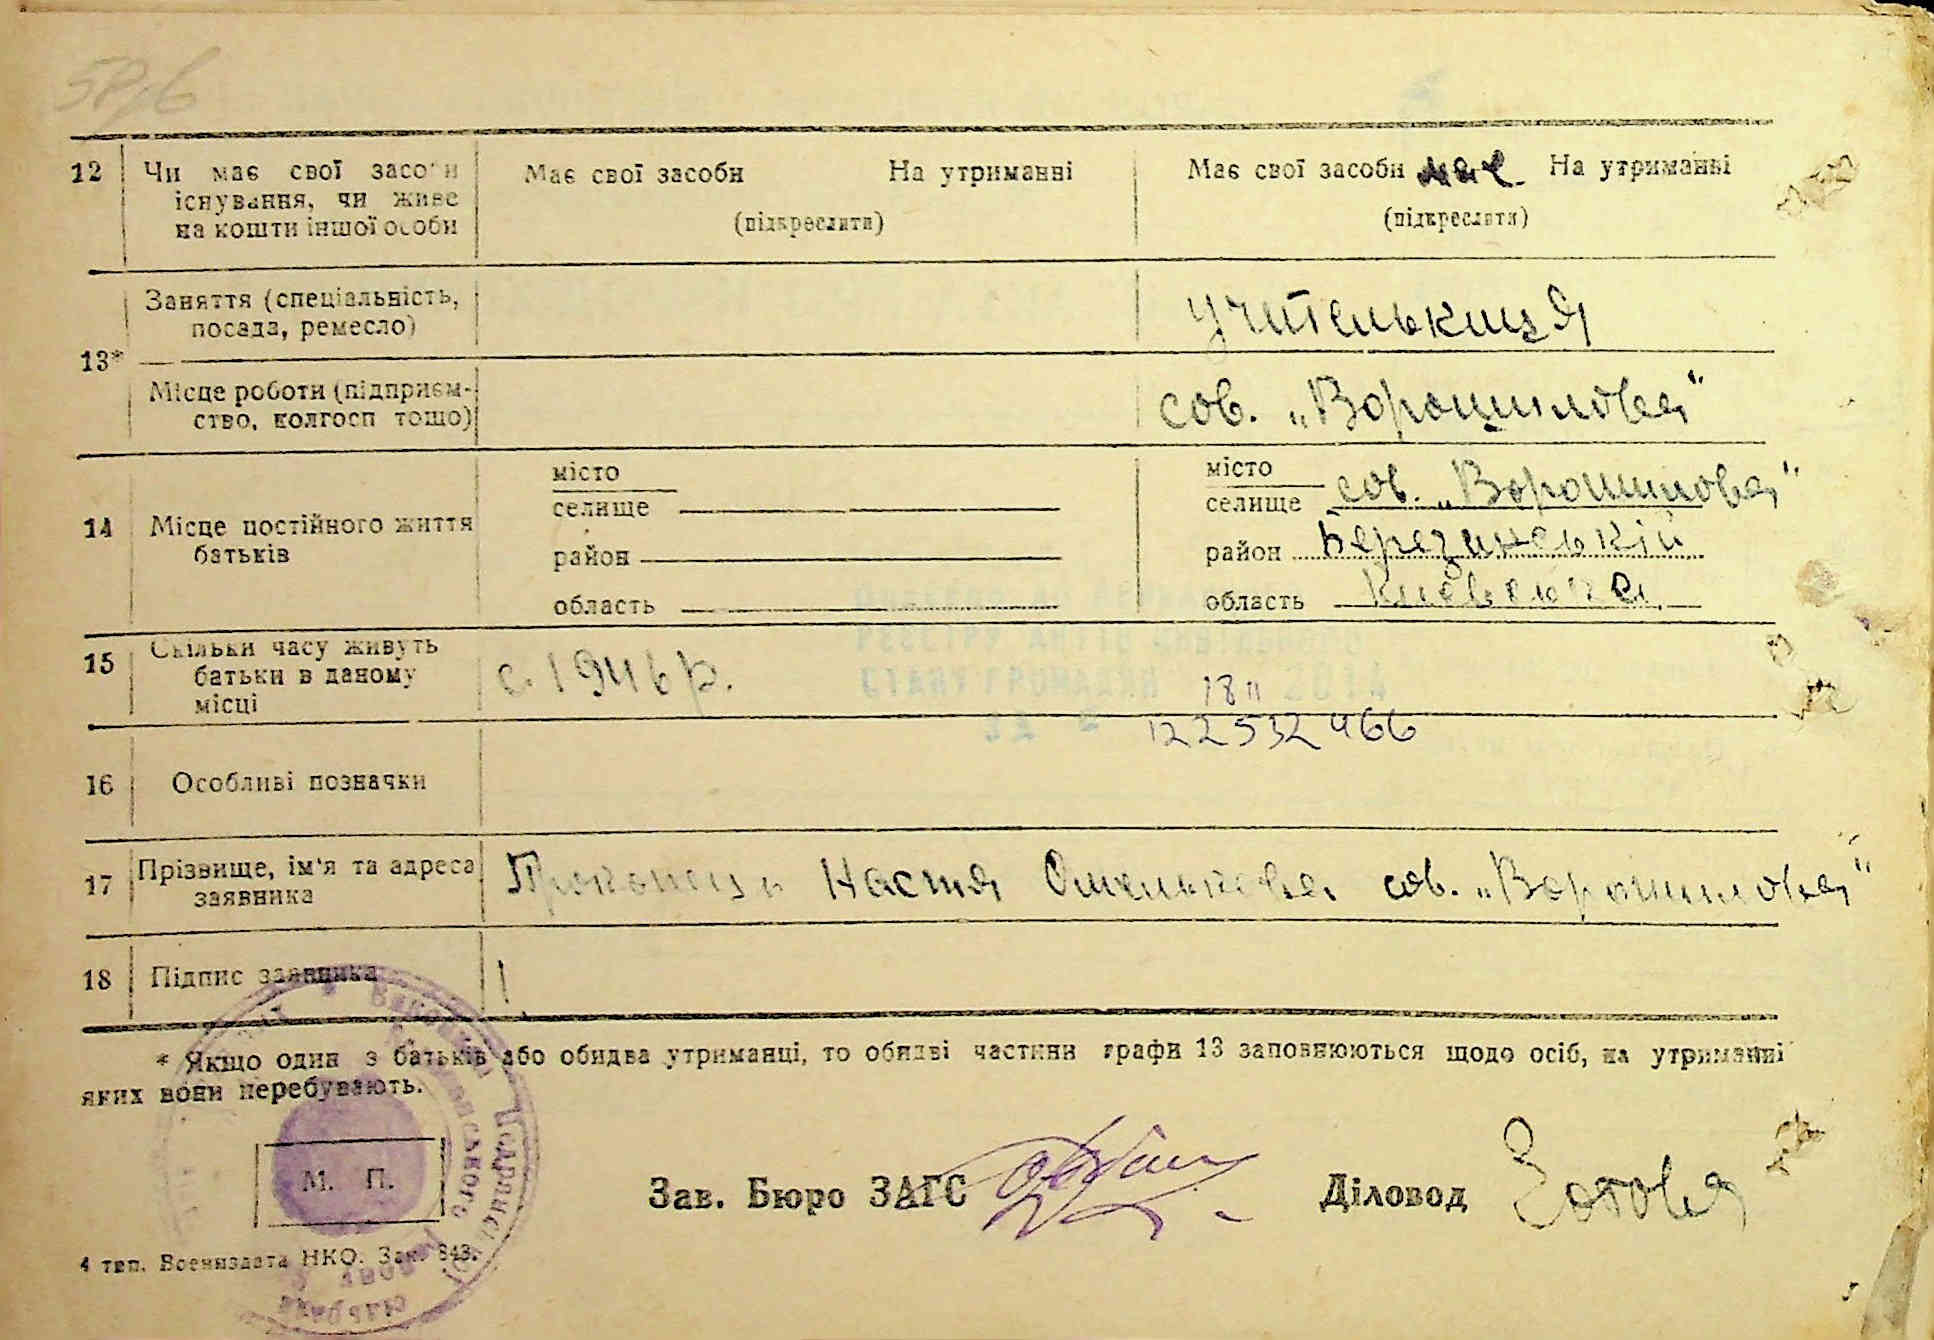 12 Чи має свої засоби Має свої засоби На утриманні Має свої засоби має На утриманні
існування, чи живе (підкреслити) (підкреслити)
на кошти іншої особи
Заняття (спеціальність, учителькиця
посада, ремесло)
13*
Місце роботи (підприєм- сов. „Ворошилова"
ство, колгосп тощо)
місто місто
селище селище сов. „Ворошилова"
14 Місце постійного життя
батьків
район район Березанський
область область Київська
15 Скільки часу живуть с. 1946 р.
батьки в даному
місці
РЕЄСТРУ АКТІВ ЦИВІЛЬНОГО
СТАНУ ГРОМАДЯН 2014
122532466
16 Особливі позначки
17 Прізвище, ім'я та адреса Настя Омельківна сов. „Ворошилова"
заявника
18 Підпис заявника
* Якщо один з батьків або обидва утриманці, то обидві частини графи 13 заповнюються щодо осіб, на утриманні
яких вони перебувають.
М. П.
Зав. Бюро ЗАГС Діловод Зотова
4 тип. Воениздата НКО. Зак. 843.